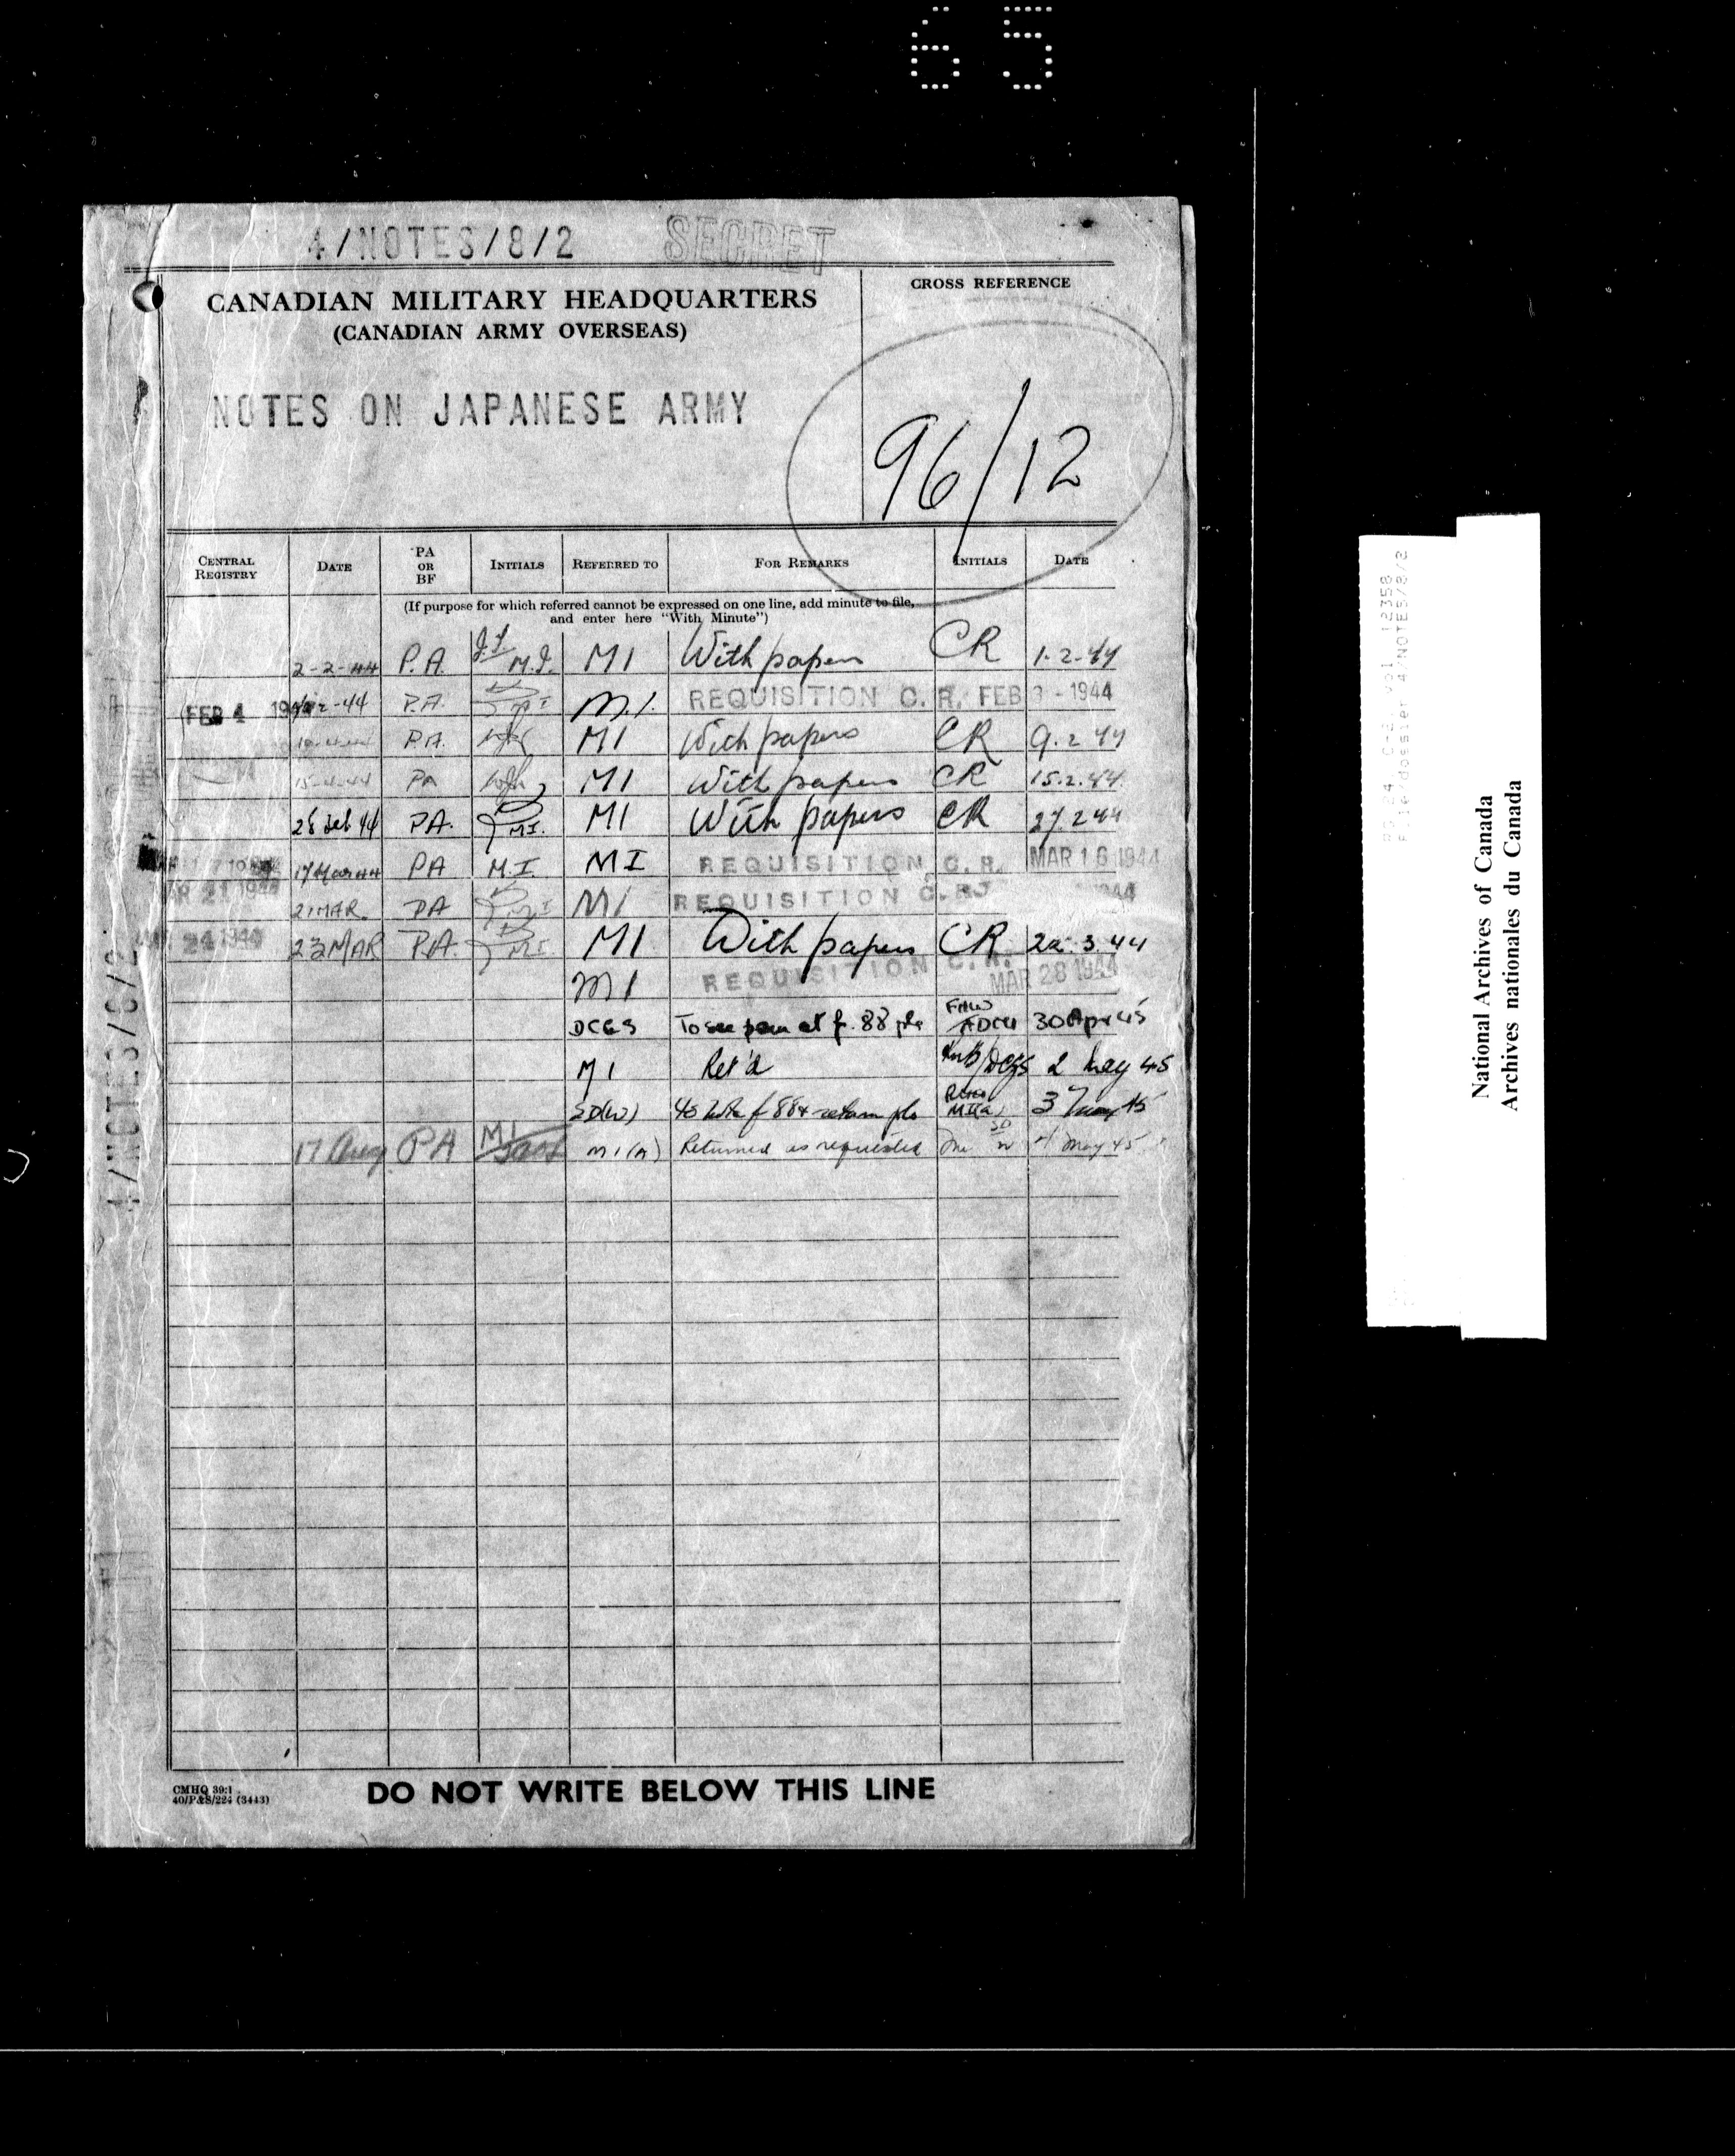 65
4/NOTES/8/2 SECRET
CANADIAN MILITARY HEADQUARTERS
(CANADIAN ARMY OVERSEAS)
CROSS REFERENCE
NOTES ON JAPANESE ARMY
96/12
CENTRAL REGISTRY DATE PA OR BF INITIALS REFERRED TO FOR REMARKS INITIALS DATE
(If purpose for which referred cannot be expressed on one line, add minute to file,
and enter here "With Minute")
2-2-44 P.A. M.I. MI With papers CR 1.2.44
FEB 4 -44 P.A. M.I. REQUISITION C.R. FEB 3 - 1944
P.A. MI With papers CR 9.2.44
PA MI With papers CR 15.2.44
28 Feb 44 PA. MI. MI With papers CR 27.2.44
17 Mar 44 PA M.I. MI REQUISITION C.R. MAR 16 1944
21 MAR. PA MI REQUISITION C.R.
24 1944 23 MAR P.A. MI. MI With papers CR 22.3.44
MI REQUISITION C.R. MAR 28 1944
DCGS To see at f. 88 pls 30 Apr 45
MI Ret'd DCGS 2 May 45
SD(W) to note f 88 & return pls MI(a) 3 May 45
17 Aug PA MI MI(A) Returned as requested 4 May 45
4/NOTES/8/2
CMHQ 39:1
40/P.&S/224 (3443)
DO NOT WRITE BELOW THIS LINE
RG 24, C-2, vol. 12358
File/dossier 4/NOTES/8/2
National Archives of Canada
Archives nationales du Canada